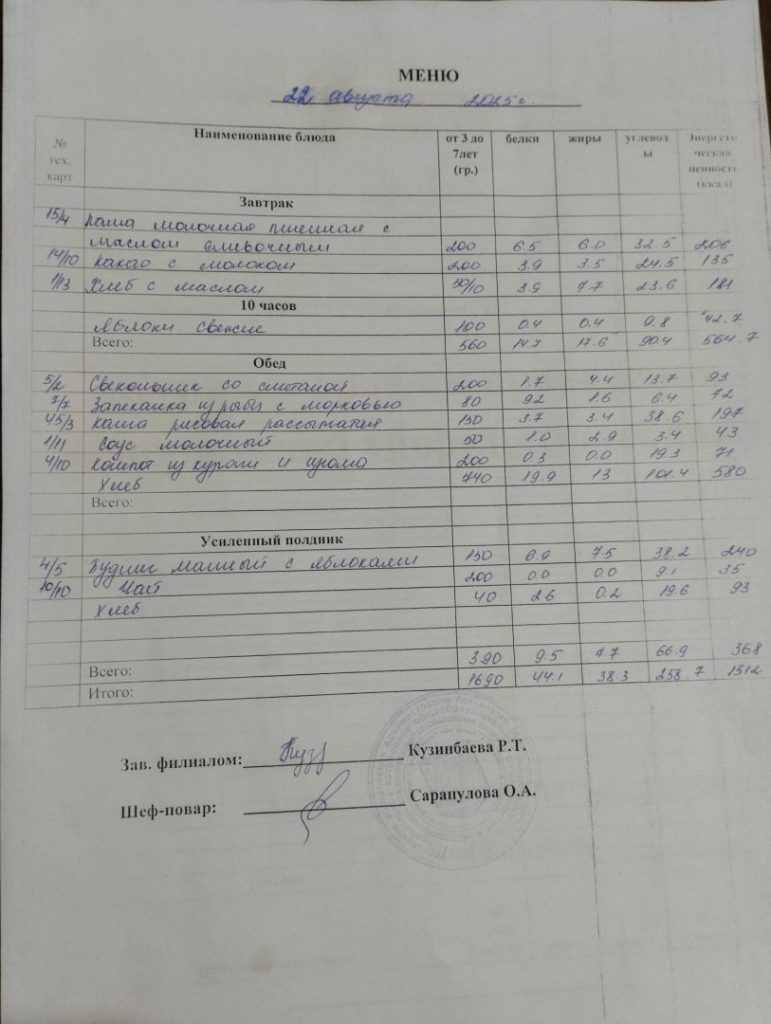 МЕНЮ
22 августа 2025 г.
№ тех. карт Наименование блюда от 3 до 7лет (гр.) белки жиры углевод ы Энергети ческая ценность (ккал)
Завтрак
15/4 Каша молочная пшенная с
маслом сливочным 200 6.5 6.0 32.5 206
14/10 Какао с молоком 200 3.9 3.5 24.5 135
1/13 Хлеб с маслом 50/10 3.9 7.7 23.6 181
10 часов
Яблоки свежие 100 0.4 0.4 9.8 42.7
Всего: 560 14.7 17.6 90.4 564.7
Обед
5/2 Свекольник со сметаной 200 1.7 4.4 13.7 93
7/7 Запеканка из рыбы с морковью 80 9.2 1.6 6.4 72
45/3 Каша рисовая рассыпатая 150 3.7 3.4 38.6 197
1/11 Соус молочный 50 1.0 2.9 3.4 43
4/10 Компот из кураги и изюма 200 0.3 0.0 19.3 71
Хлеб 740 19.9 13 101.4 580
Всего:
Усиленный полдник
4/5 Пудинг манный с яблоками 150 6.9 7.5 38.2 240
10/10 Чай 200 0.0 0.0 9.1 35
Хлеб 40 2.6 0.2 19.6 93
390 9.5 7.7 66.9 368
Всего: 1690 44.1 38.3 258.7 1512
Итого:
Зав. филиалом: Кузинбаева Р.Т.
Шеф-повар: Сарапулова О.А.